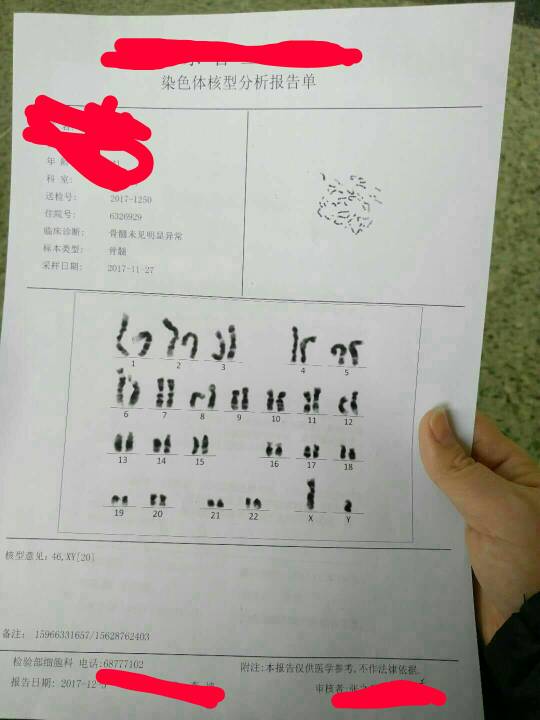 染色体核型分析报告单
年
科 室:
送检号: 2017-1250
住院号: 6326929
临床诊断: 骨髓未见明显异常
标本类型: 骨髓
采样日期: 2017-11-27
1 2 3 4 5
6 7 8 9 10 11 12
13 14 15 16 17 18
19 20 21 22 X Y
核型意见: 46,XY[20]
备注: 15966331657/15628762403
检验部细胞科 电话:68777102 附注:本报告仅供医学参考,不作法律依据.
报告日期: 2017-12- 审核者:张